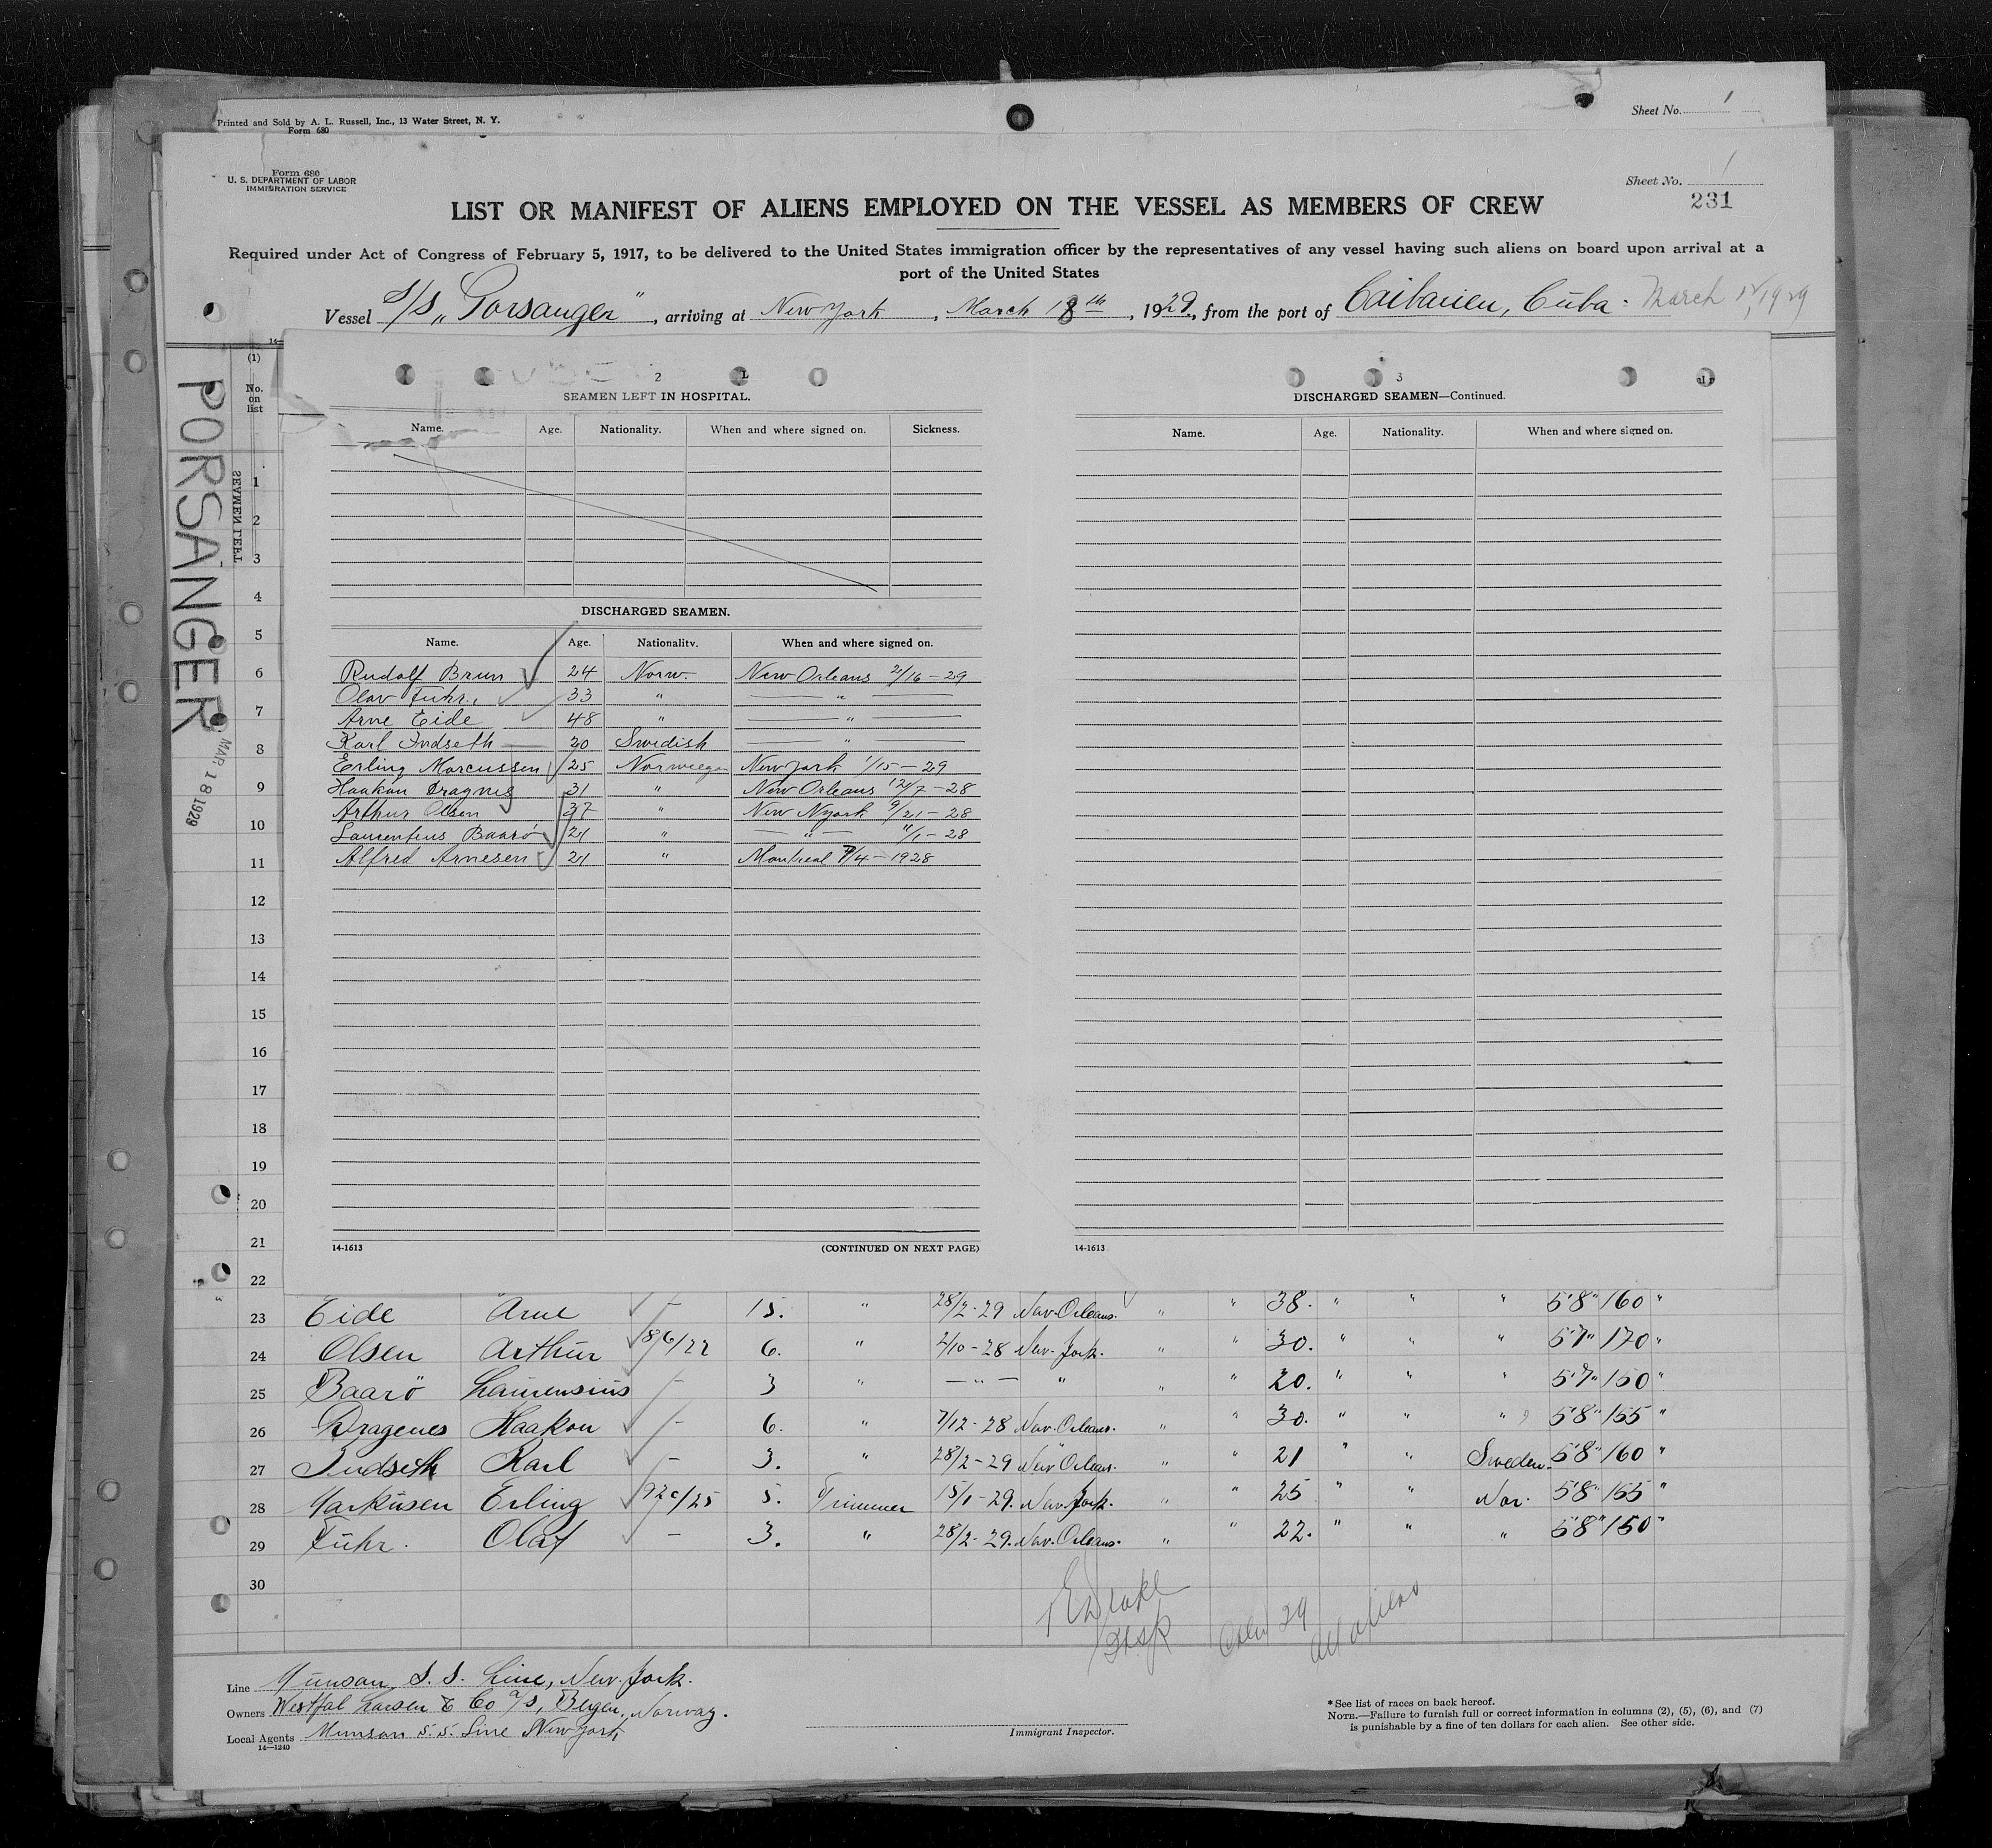 Printed and Sold by A. L. Russell, Inc., 13 Water Street, N. Y.
Form 680
Sheet No. 1
Form 680
U. S. DEPARTMENT OF LABOR
IMMIGRATION SERVICE
Sheet No. 1
231
LIST OR MANIFEST OF ALIENS EMPLOYED ON THE VESSEL AS MEMBERS OF CREW
Required under Act of Congress of February 5, 1917, to be delivered to the United States immigration officer by the representatives of any vessel having such aliens on board upon arrival at a
port of the United States
Vessel S/S „Porsanger", arriving at New York, March 18th, 1929, from the port of Caibarien, Cuba. March 12, 1929
PORSANGER
MAR 18 1929
SEAMEN LEFT
(1)
No.
on
list
2
SEAMEN LEFT IN HOSPITAL.
Name. Age. Nationality. When and where signed on. Sickness.
DISCHARGED SEAMEN.
Name. Age. Nationality. When and where signed on.
Rudolf Brun 24 Norw. New Orleans 2/16-29
Olav Fuhr. 33 " — " —
Arne Eide 48 " — " —
Karl Indseth 20 Swedish — " —
Erling Marcussen 25 Norweeg New York 1/15-29
Haakon Dragnes 31 " New Orleans 12/7-28
Arthur Olsen 37 " New Nyork 9/21-28
Laurentius Baarö 21 " — " — 11/1-28
Alfred Arnesen 21 " Montreal 7/4-1928
14-1613 (CONTINUED ON NEXT PAGE)
3
DISCHARGED SEAMEN—Continued.
Name. Age. Nationality. When and where signed on.
14-1613
1
2
3
4
5
6
7
8
9
10
11
12
13
14
15
16
17
18
19
20
21
22
23 Eide Arne - 15. " 28/2-29 New-Orleans. " " 38. " " " 5'8" 160 "
24 Olsen Arthur 18/6/22 6. " 2/10-28 New-York. " " 30. " " " 5'7" 170 "
25 Baarö Laurensius - 3 " — " — " " " 20. " " " 5'7" 150 "
26 Dragenes Haakon - 6. " 7/12-28 New-Orleans. " " 30. " " " 5'8" 155 "
27 Indseth Karl - 3. " 28/2-29 New Orleans. " " 21 " " Sweden. 5'8" 160 "
28 Markusen Erling 5. Trimmer 15/1-29. New-York. " " 25 " " Nor. 5'8" 155 "
29 Fuhr. Olaf - 3. " 28/2-29. New-Orleans. " " 22. " " " 5'8" 150 "
30
29
All aliens
Line Munson S. S. Line, New-York.
Owners Westfal Larsen & Co a/s, Bergen, Norway.
Local Agents Munson S. S. Line New York
14—1240
Immigrant Inspector.
*See list of races on back hereof.
NOTE.—Failure to furnish full or correct information in columns (2), (5), (6), and (7)
is punishable by a fine of ten dollars for each alien. See other side.